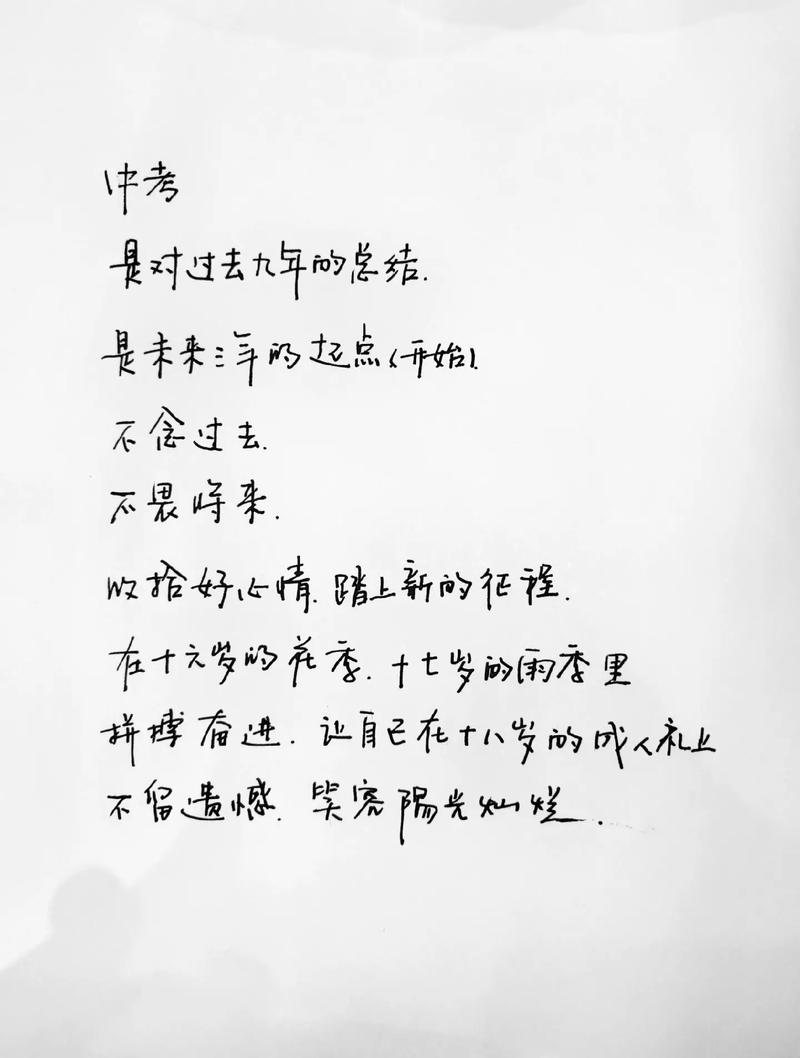 中考
是对过去九年的总结.
是未来三年的起点(开始).
不念过去.
不畏将来.
收拾好心情.踏上新的征程.
在十六岁的花季.十七岁的雨季里
拼搏奋进.让自己在十八岁的成人礼上
不留遗憾.笑容陽光灿烂.